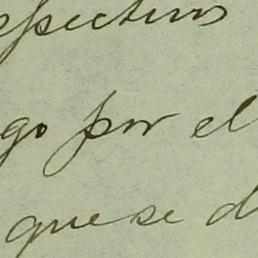 espectivos
go por el
que se d